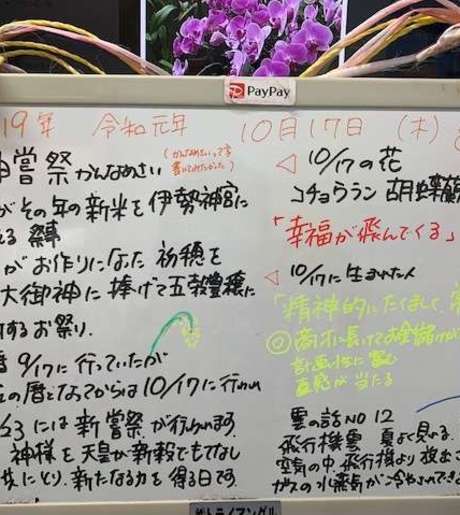 PayPay
19年 令和元年 10月17日 (木)
嘗祭 かんなめさい
がその年の新米を伊勢神宮に
る 祭事
がお作りになた 初穂を
大御神に捧げて五穀豊穣に
するお祭り。
9/17に行っていたが
の暦となってからは10/17に行われ
23には新嘗祭が行われます。
神様を天皇が新穀でもてなし
にとり、新たなる力を得る日です。
◁ 10/17の花
コチョウラン 胡蝶蘭
「幸福が飛んでくる」
◁ 10/17に生まれた人
「精神的にたくましく、
計画性に富む
直感が当たる
雲の話NO 12
飛行機雲 夏よく見る。
空気の中、飛行機より放出さ
ガスの水蒸気が冷やされてでき
㈱トライアングル